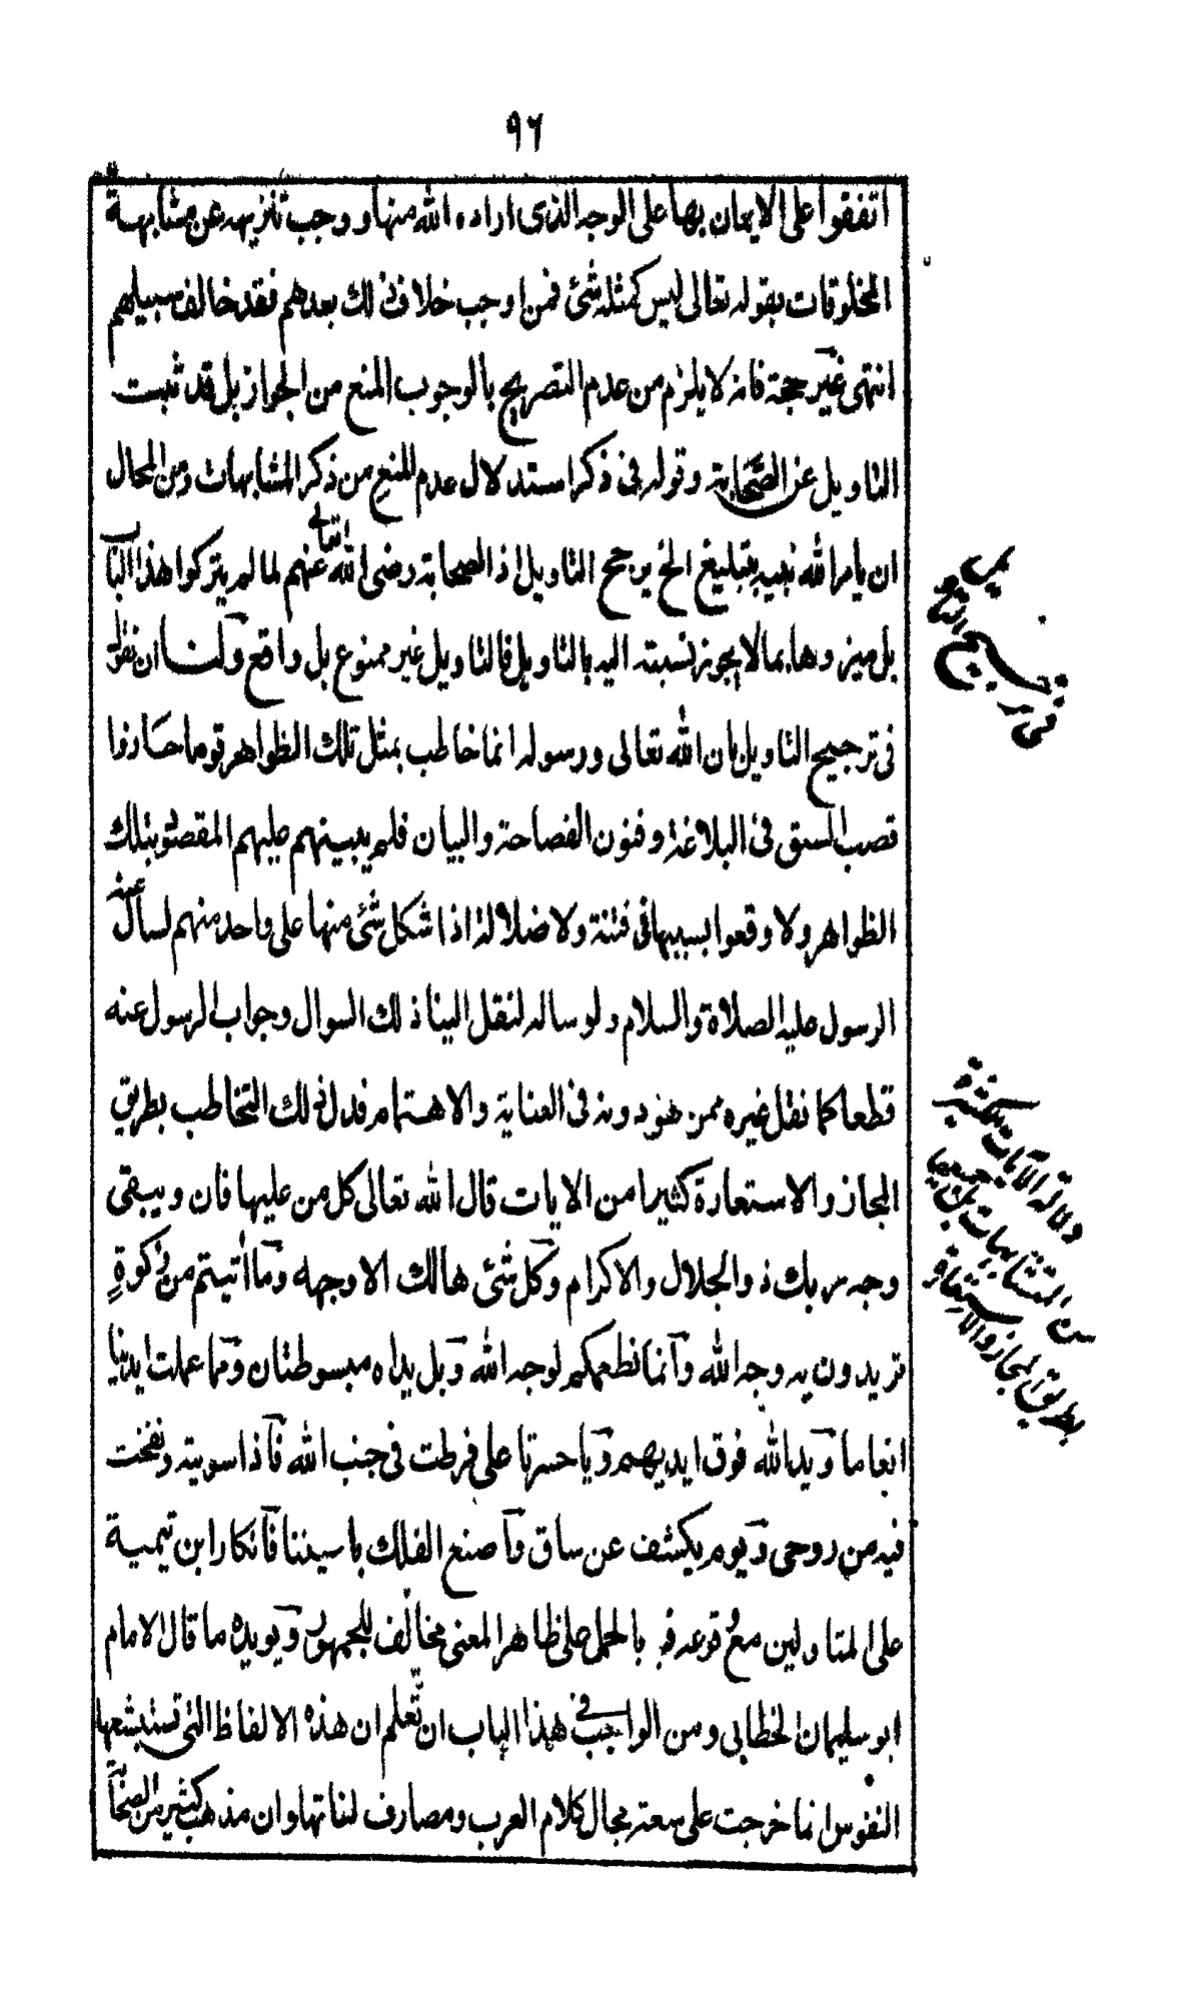 ٩٦
اتفقوا على الايمان بها على الوجه الذى اراده الله منها ووجب تنزيهه عن مشابهة
المخلوقات بقوله تعالى ليس كمثله شئ فمن اوجب خلاف ذلك بعدهم فقد خالف سبيلهم
انتهى غير حجة فانه لا يلزم من عدم التصريح بالوجوب المنع من الجواز بل قد ثبت
التاويل عن الصحابة وقوله فى ذكر استدلال عدم المنع من ذكر المشابهات ومن المحال
ان يأمر الله نبيه بتبليغ الخ يرجح التاويل اذ الصحابة رضى الله تعالى عنهم لما لم يتركوا هذا الباب
بل ميزوها بما لا يجوز نسبته اليه بالتاويل فالتاويل غير ممنوع بل واقع ولنا ان نقول
فى ترجيح التاويل بان الله تعالى ورسوله انما خاطب بمثل تلك الظواهر قوما حازوا
قصب السبق فى البلاغة وفنون الفصاحة والبيان فلم يبينهم عليهم المقصود بتلك
الظواهر ولا وقعوا بسببها فى فتنة ولا ضلالة اذا شكل شئ منها على واحد منهم لسأل عنه
الرسول عليه الصلاة والسلام ولو ساله لنقل الينا ذلك السوال وجواب الرسول عنه
قطعا كما نقل غيره ممن هو دونه فى العناية والاهتمام فدل ذلك التخاطب بطريق
المجاز والاستعارة كثيرا من الايات قال الله تعالى كل من عليها فان ويبقى
وجه ربك ذو الجلال والاكرام وكل شئ هالك الا وجهه وما اتيتم من زكوة
تريدون به وجه الله وانما نطعمكم لوجه الله وبل يداه مبسوطتان ومما عملت ايدينا
انعاما ويد الله فوق ايديهم ويا حسرتا على فرطت فى جنب الله فاذا سويته ونفخت
فيه من روحى ويوم يكشف عن ساق واصنع الفلك باعيننا فانكار ابن تيمية
على المتاولين مع قوله بالحمل على ظاهر المعنى مخالف للجمهور ويويده ما قال الامام
ابو سليمان الخطابى ومن الواجب فى هذا الباب ان نعلم ان هذه الالفاظ التى تستبشعها
النفوس انما خرجت على سعة مجال كلام العرب ومصارف لغاتها وان مذهب كثير من الصحابة
فى ترجيح التاويل
دلالة الآيات الكثيرة
من المتشابهات
بطريق المجاز والاستعارة